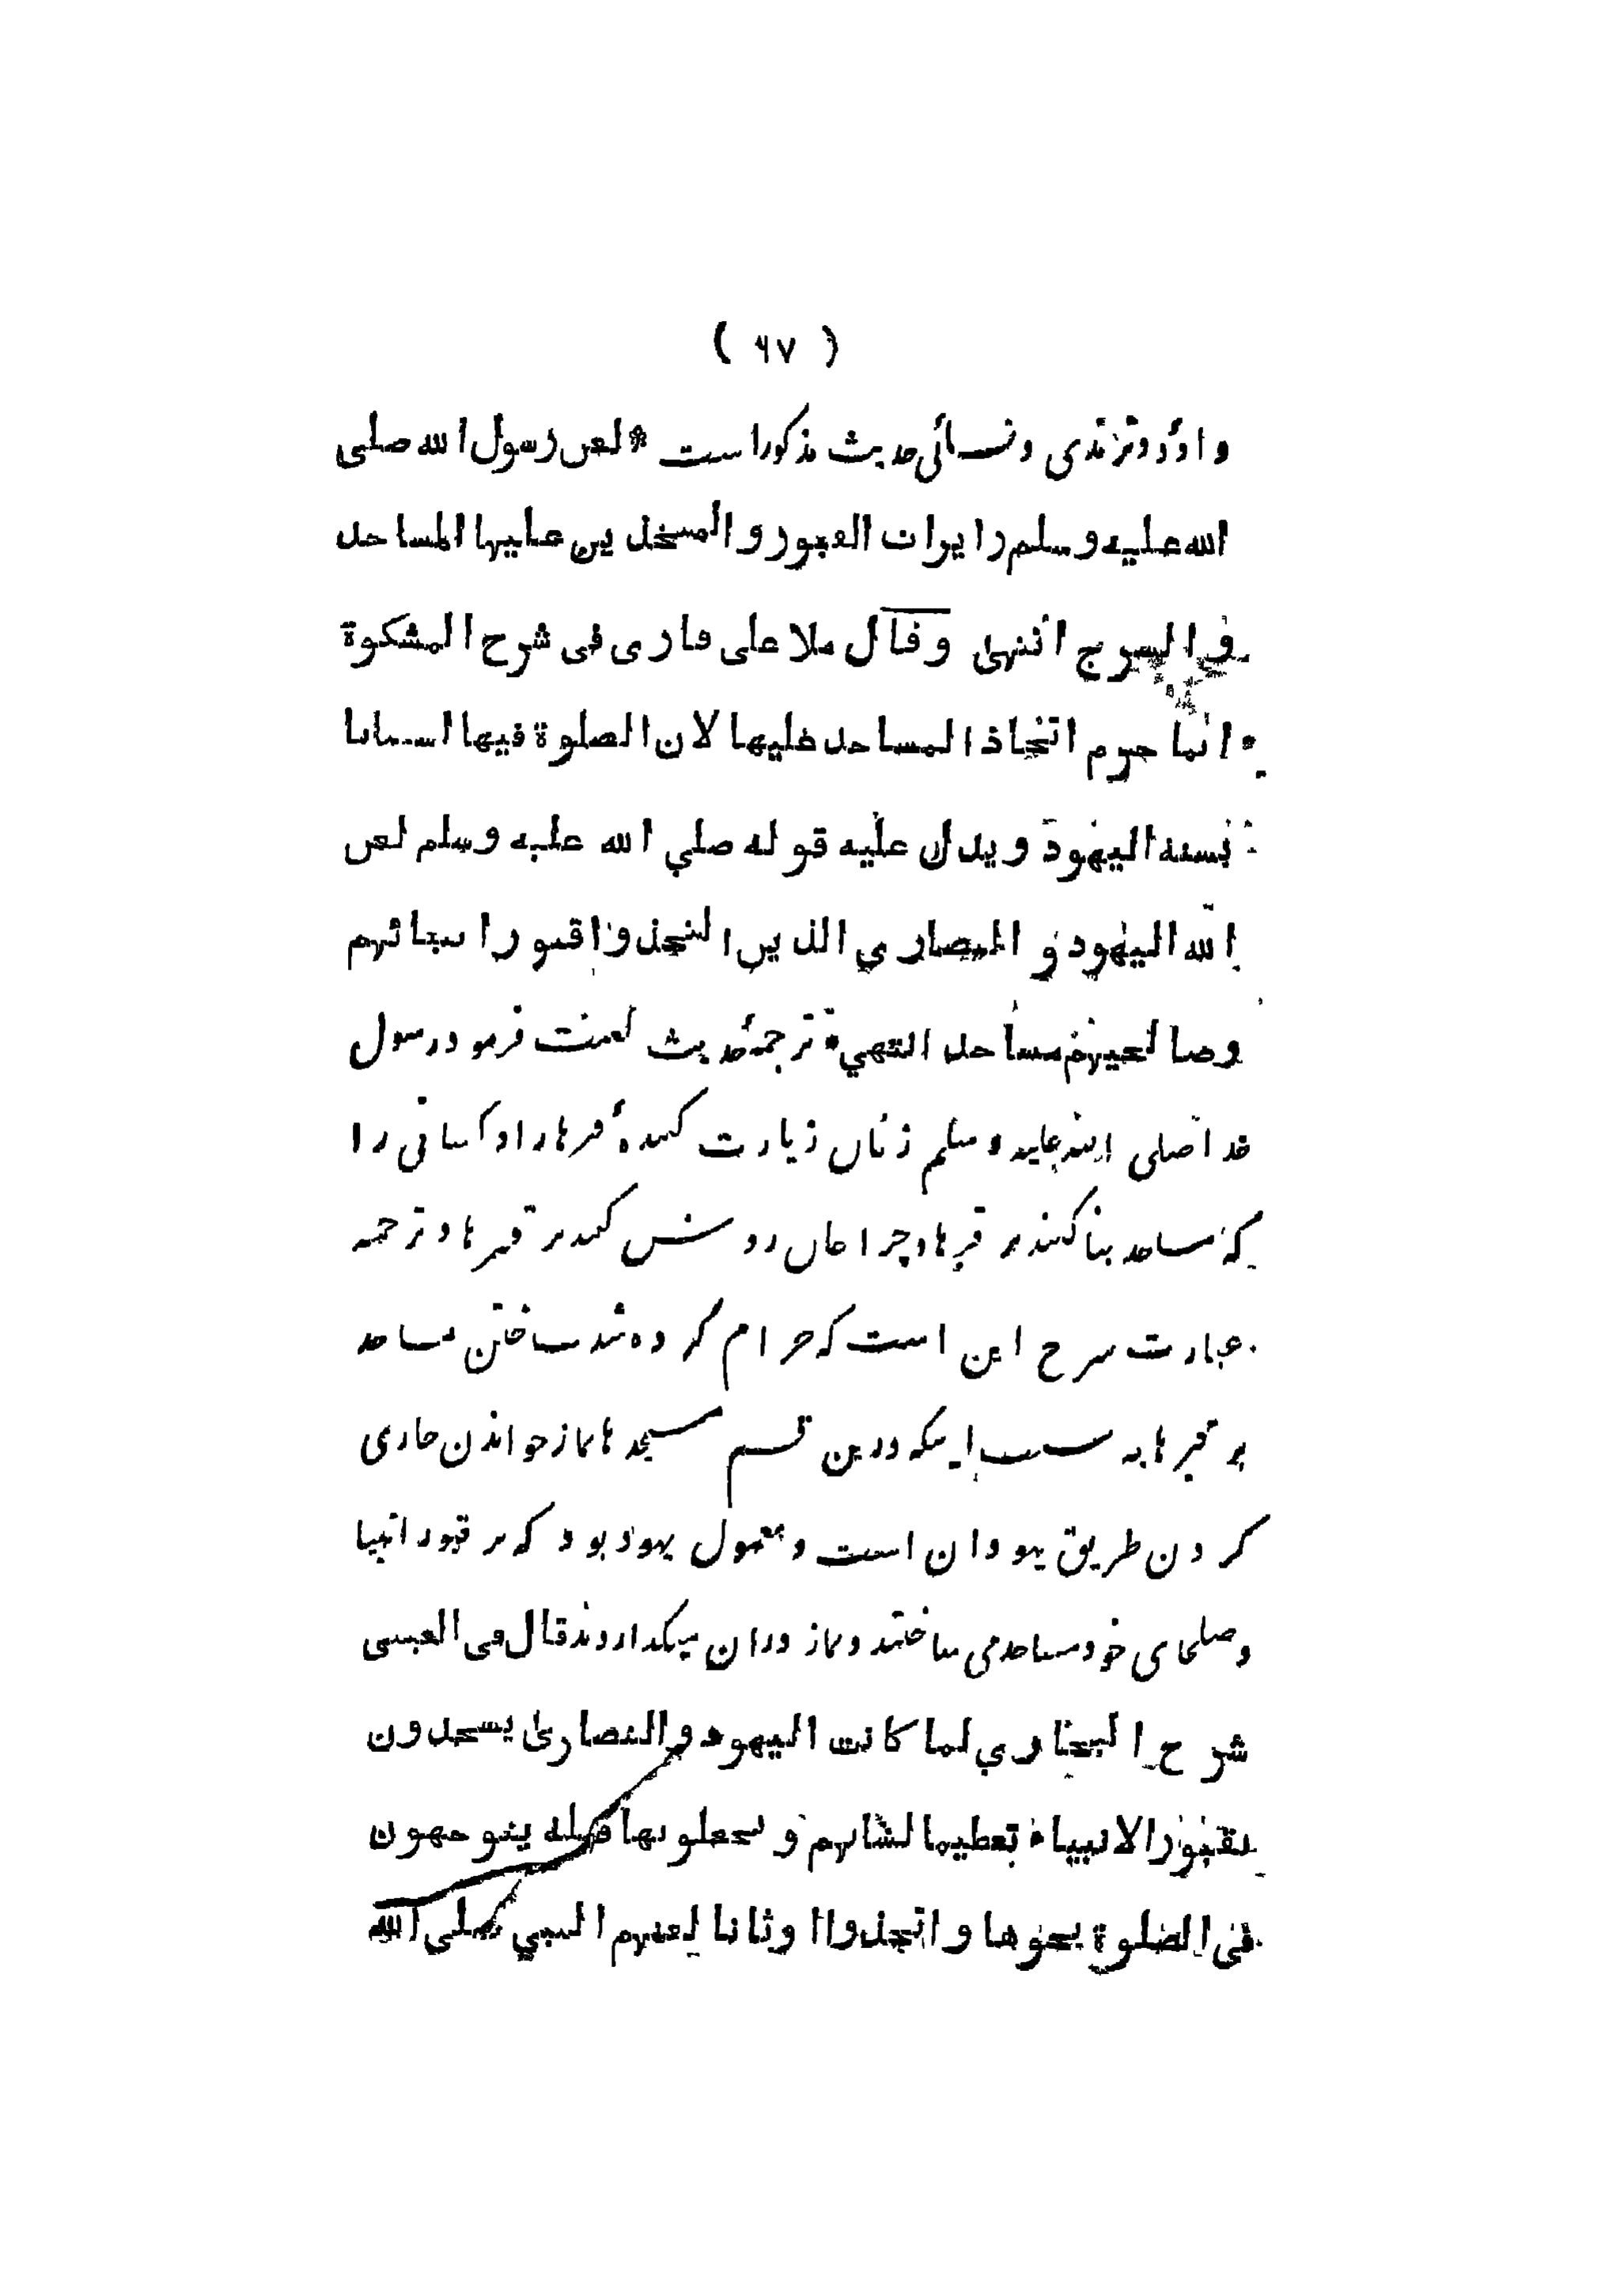 ( ٦٧ )
و اؤد و ترمذی و نسائی حدیث مذکور است * لعن رسول الله صلی
الله علیه و سلم زایرات القبور و المتخذین علیها المساجد
و السرج انتهی و قال ملا علی قاری فی شرح المشکوة
* انما حرم اتخاذ المساجد علیها لان الصلوة فیها استنانا
بسنه الیهود و یدل علیه قوله صلي الله علیه و سلم لعن
الله الیهود و النصاری الذین اتخذوا قبور انبیائهم
و صالحیهم مساجد انتهي * ترجمهٔ حدیث لعنت فرمود رسول
خدا صلی الله علیه و سلم زنان زیارت کنندهٔ قبرها را و کسانی را
که مساجد بنا کنند بر قبرها و چراغان روشن کنند بر قبرها و ترجمه
عبارت شرح این است که حرام کرده شد ساختن مساجد
بر قبرها به سبب اینکه درین قسم مسجدها نماز خواندن جاری
کردن طریق یهودان است و معمول یهود بود که بر قبور انبیا
و صلحای خود مساجد می ساختند و نماز دران میگذاردند قال فی العینی
شرح البخاري لما کانت الیهود و النصاری یسجدون
بقبور الانبیاء تعظیما لشانهم و یجعلونها قبله یتوجهون
فی الصلوة نحوها و اتخذوا اوثانا لعنهم النبي صلی الله